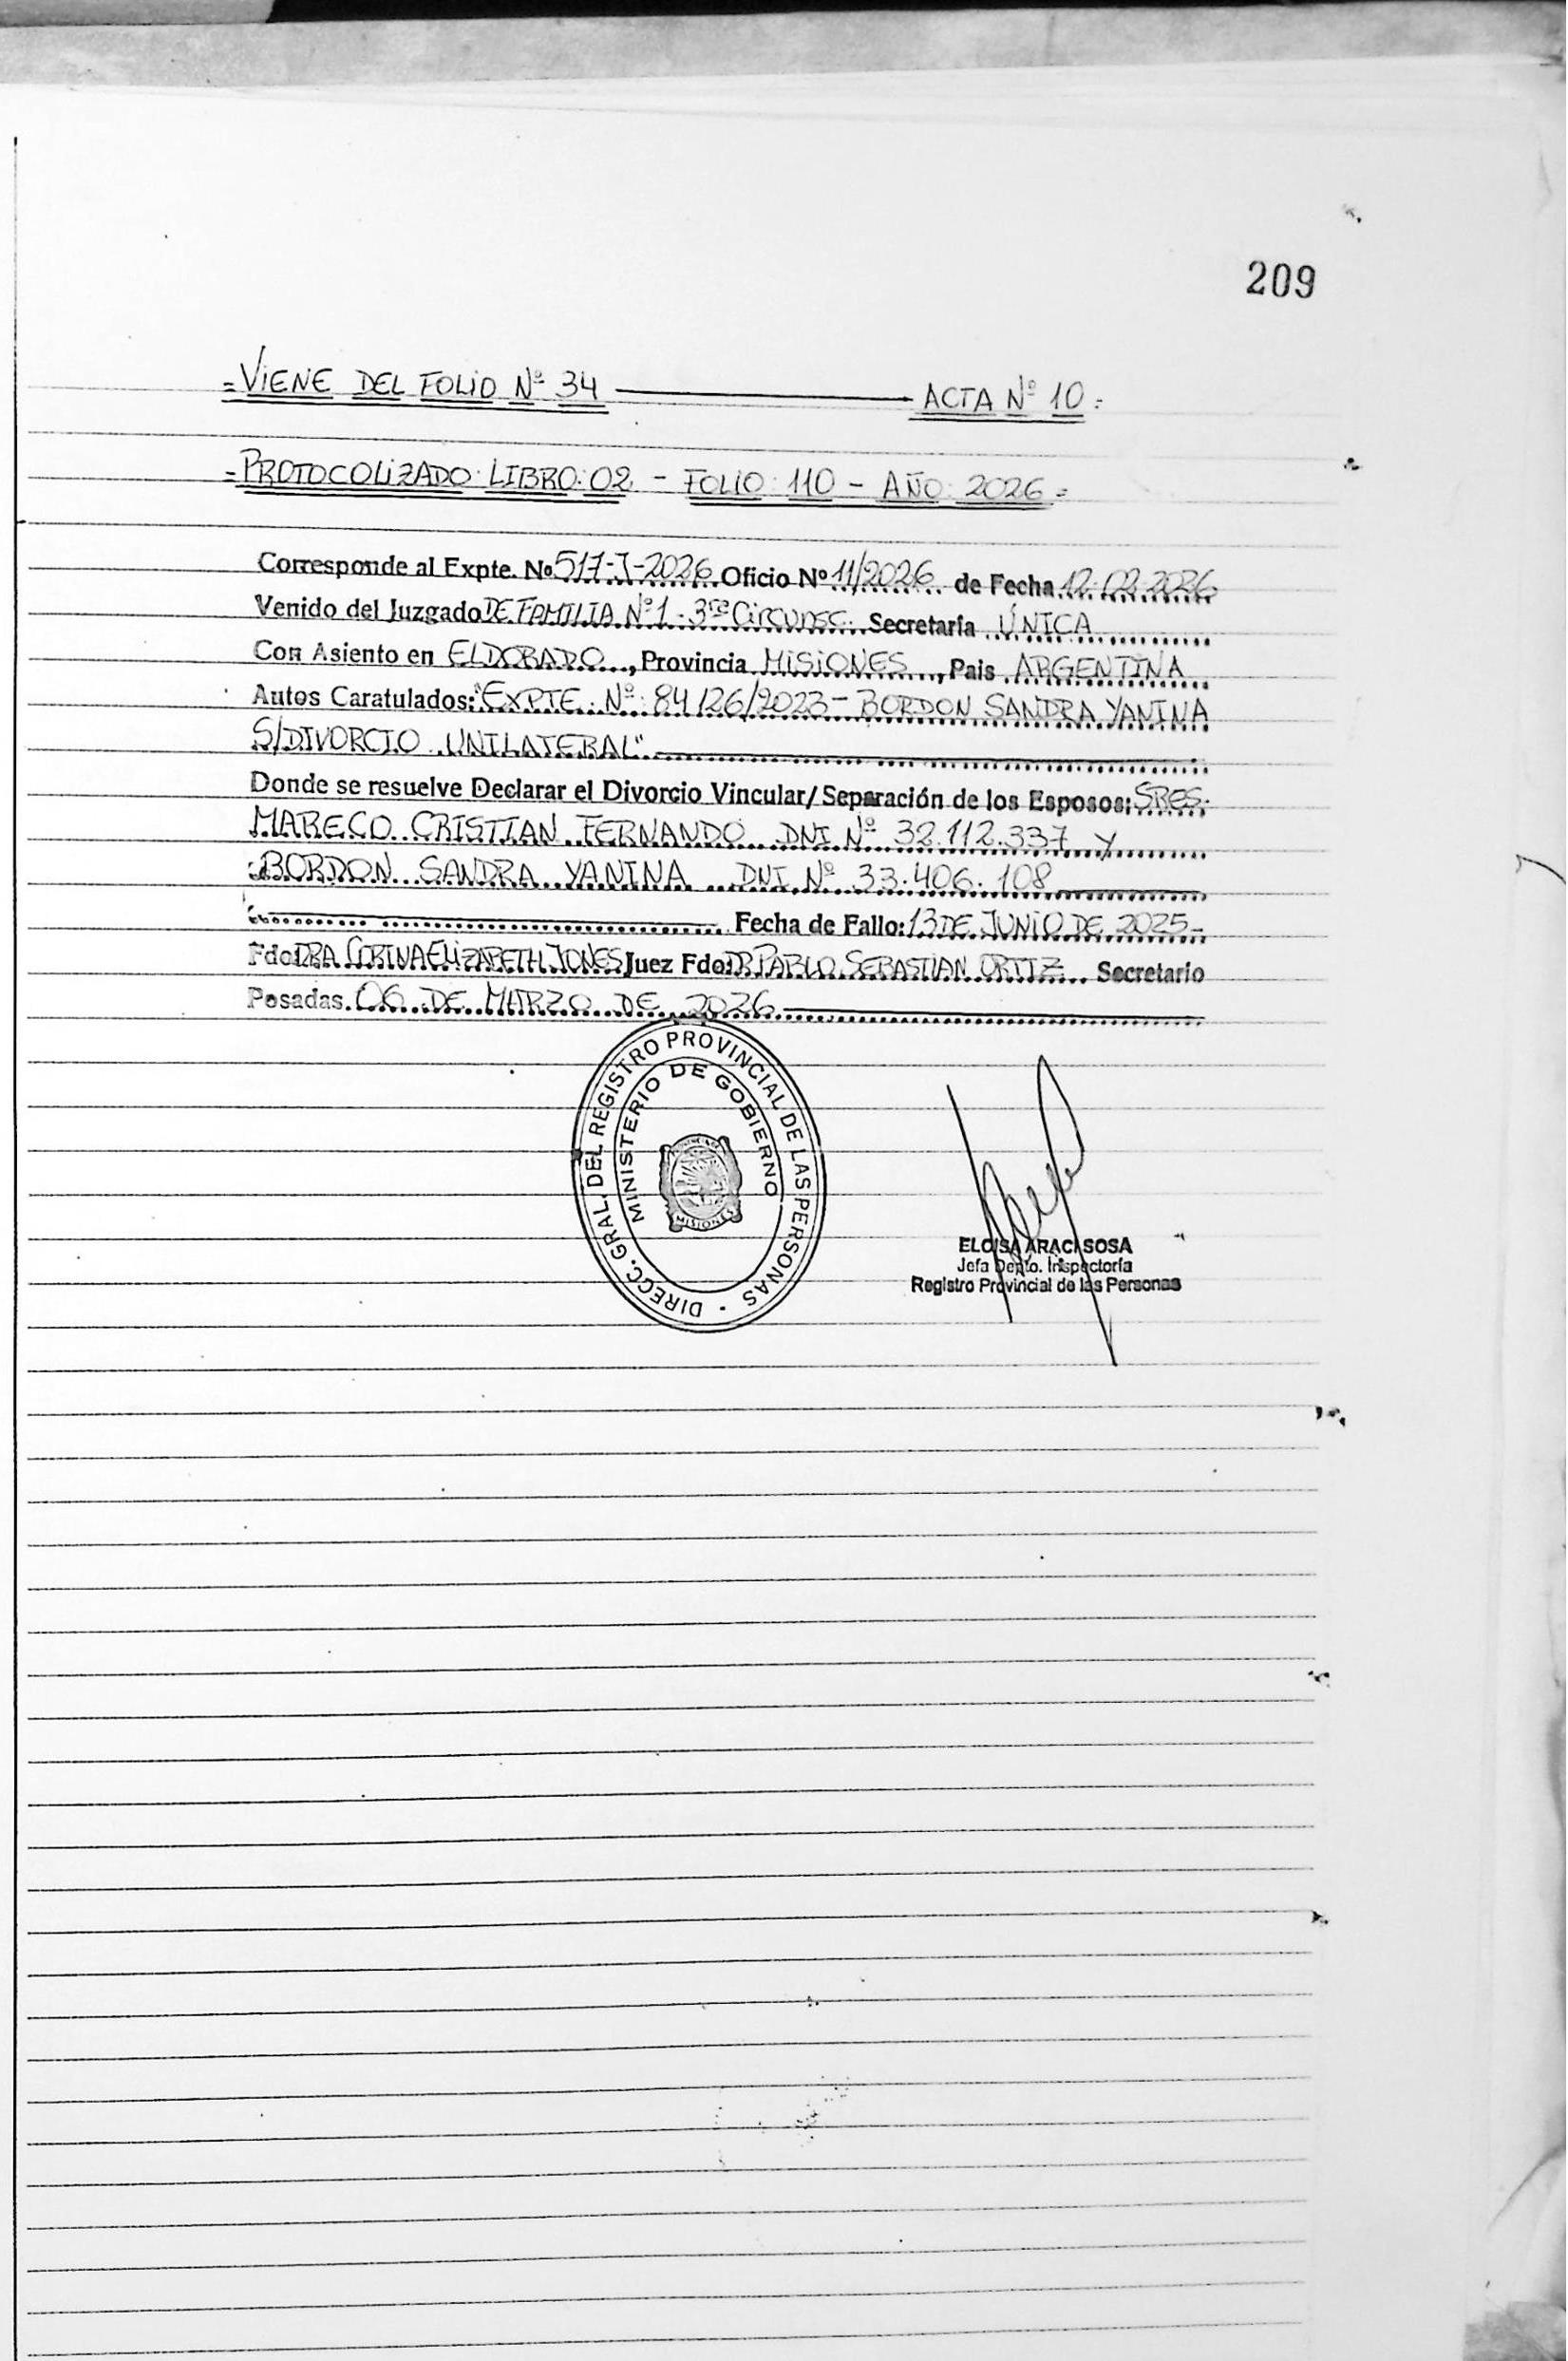 209
=VIENE DEL FOLIO Nº 34 ACTA Nº 10=
=PROTOCOLIZADO: LIBRO: 02 - FOLIO: 110 - AÑO: 2026=
Corresponde al Expte. Nº 517-J-2026 Oficio Nº 11/2026 de Fecha 12.02.2026
Venido del Juzgado DE FAMILIA Nº 1 - 3ra Circunsc. Secretaría ÚNICA
Con Asiento en ELDORADO, Provincia MISIONES, Pais ARGENTINA
Autos Caratulados: "EXPTE. Nº: 84126/2023 - BORDON SANDRA YANINA
S/DIVORCIO UNILATERAL"
Donde se resuelve Declarar el Divorcio Vincular/Separación de los Esposos: SRES.
MARECO CRISTIAN FERNANDO DNI Nº 32.112.337 y
BORDON SANDRA YANINA DNI Nº 33.406.108
Fecha de Fallo: 13 DE JUNIO DE 2025-
Fdo: DRA CORINA ELIZABETH JONES Juez Fdo: DR PABLO SEBASTIAN ORTIZ Secretario
Posadas. 06 DE MARZO DE 2026
DIRECC. GRAL. DEL REGISTRO PROVINCIAL DE LAS PERSONAS
MINISTERIO DE GOBIERNO
MISIONES
ELOISA ARACI SOSA
Jefa Depto. Inspectoría
Registro Provincial de las Personas